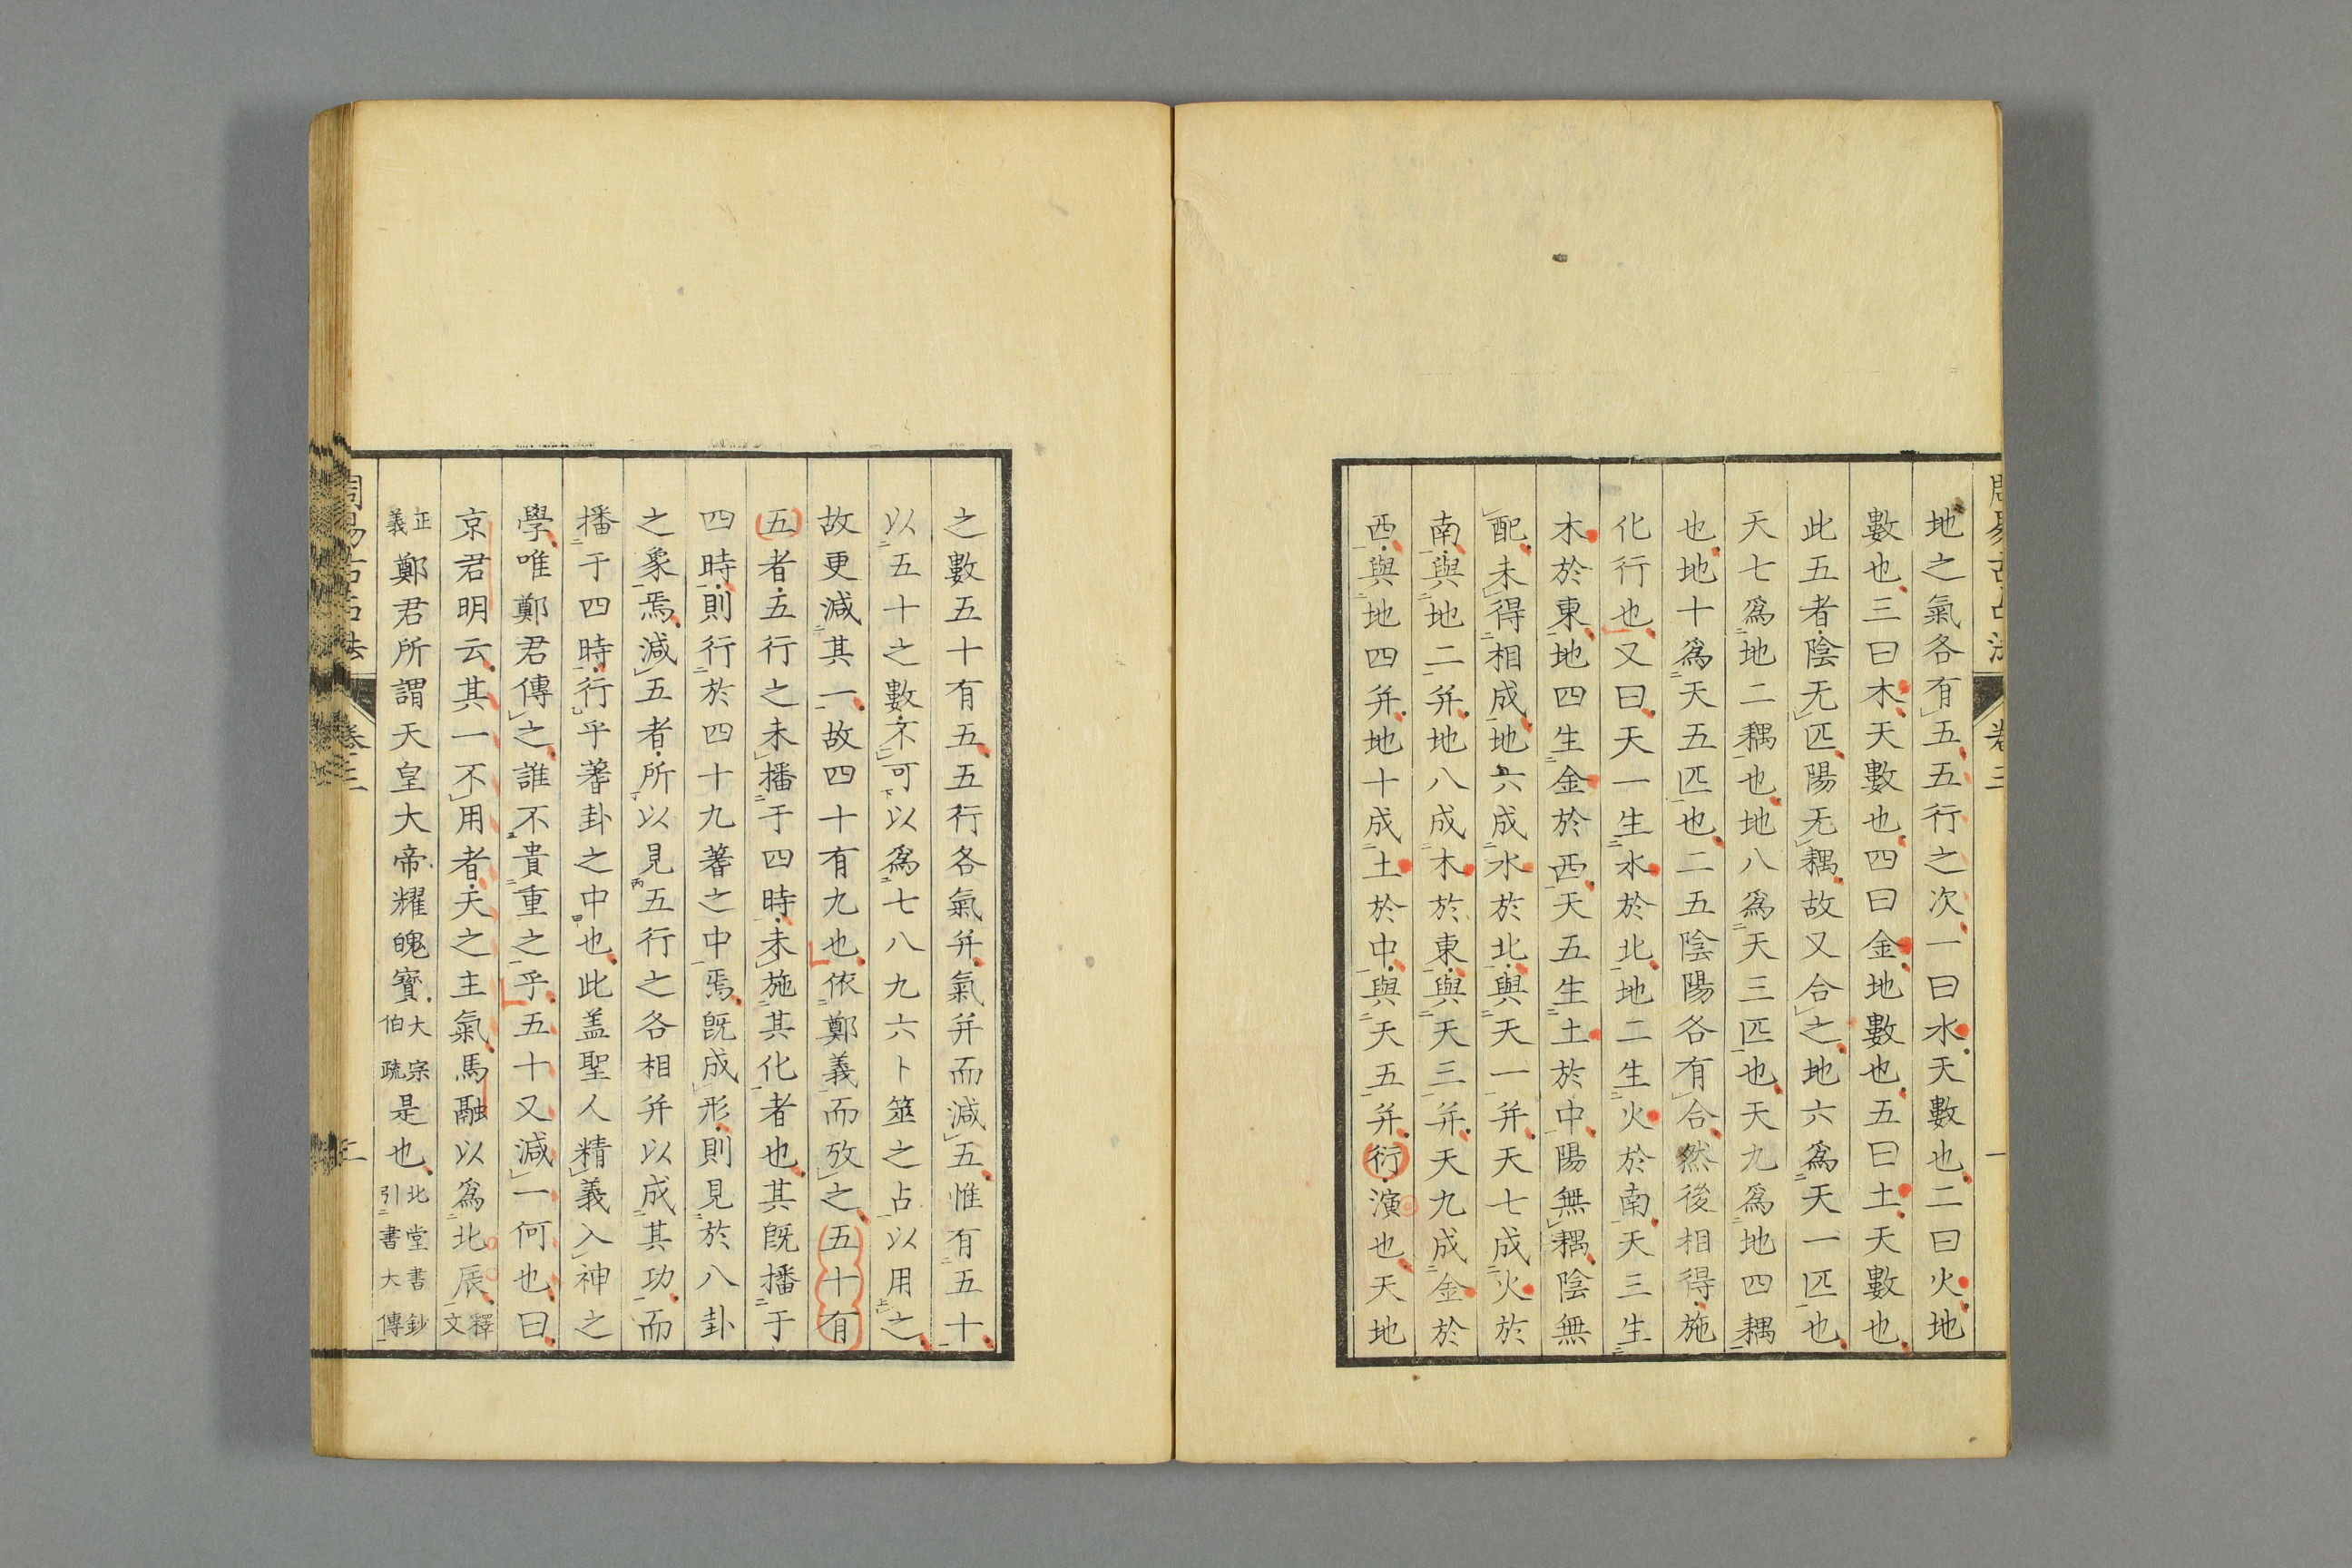 周易古占法 卷三 一
地之氣各有五五行之次一曰水天數也二曰火地
數也三曰木天數也四曰金地數也五曰土天數也
此五者陰无匹陽无耦故又合之地六爲天一匹也
天七爲地二耦也地八爲天三匹也天九爲地四耦
也地十爲天五匹也二五陰陽各有合然後相得施
化行也又曰天一生水於北地二生火於南天三生
木於東地四生金於西天五生土於中陽無耦陰無
配未得相成地六成水於北與天一并天七成火於
南與地二并地八成木於東與天三并天九成金於
西與地四并地十成土於中與天五并衍演也天地
之數五十有五五行各氣并氣并而減五惟有五十
以五十之數不可以爲七八九六卜筮之占以用之
故更減其一故四十有九也依鄭義而攷之五十有
五者五行之未播于四時未施其化者也其既播于
四時則行於四十九蓍之中焉既成形則見於八卦
之象焉減五者所以見五行之各相并以成其功而
播于四時行乎蓍卦之中也此盖聖人精義入神之
學唯鄭君傳之誰不貴重之乎五十又減一何也曰
京君明云其一不用者天之主氣馬融以爲北辰釋文
正義鄭君所謂天皇大帝耀魄寶大宗伯疏是也北堂書鈔引書大傳
周易古占法 卷三 二